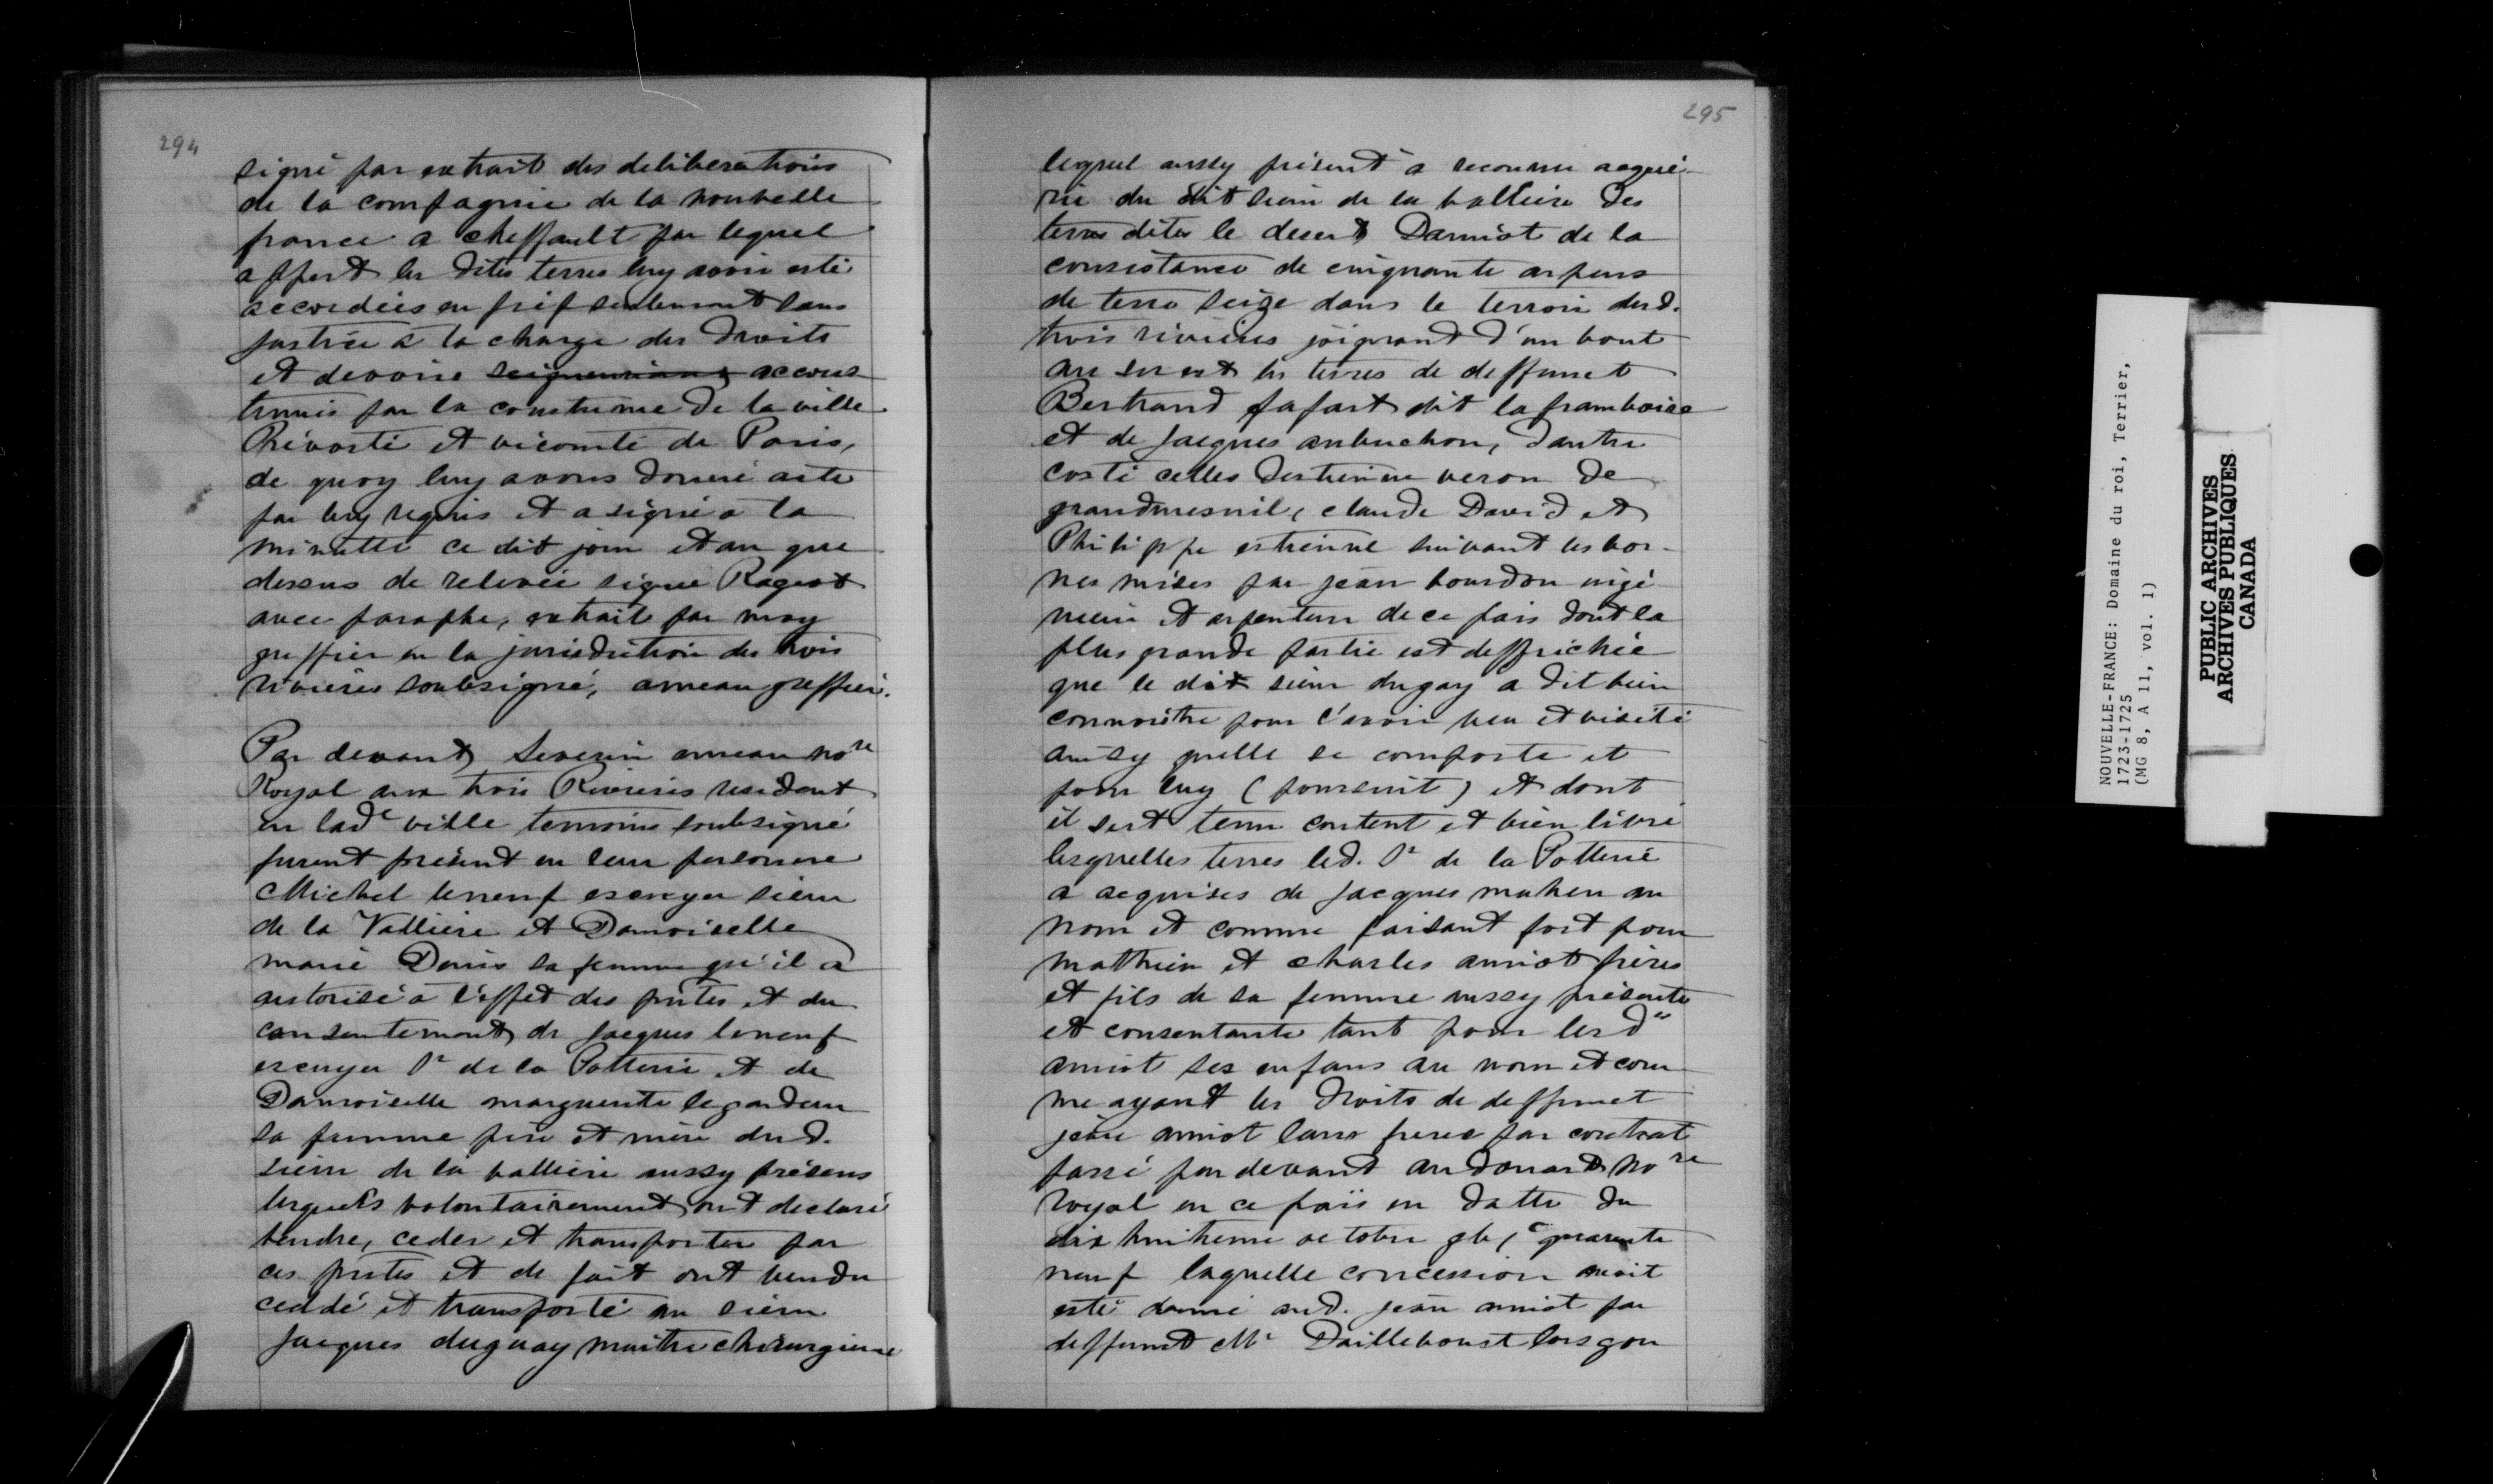 294
signé par extrait des deliberations
de la compagnie de la nouvelle
france a cheffault par lequel
appert les dites terres luy avoir esté
accordées en fief seulement sans
justice à la charge des droits
et devoirs seigneuriaux accous
tumés par la coustume de la ville
Prévosté et vicomté de Paris,
de quoy luy avons donné acte
par luy requis et a signé a la
minutte ce dit jour et an que
dessus de relevée signé Rageot
avec paraphe, extrait par moy
greffier en la jurisdiction des trois
rivieres soubsigné, ameau greffier.
Par devant Severin ameau no re
Royal aux trois Rivieres residant
en lad e ville temoins soubsigné
furent présent en leur personne
Michel leneuf escuyer sieur
de la Valliere et Damoiselle
marie Denis sa femme qu'il a
autorisé a l'effet des prntes et du
consentement de Jacques leneuf
escuyer Sr de la Potterie et de
Damoiselle marguerite legardeur
sa femme père et mère dud.
sieur de la valliere aussy présens
lesquels volontairement ont declaré
vendre, ceder et transporter par
ces prntes et de fait ont vendu
ceddé et transporté au sieur
Jacques duguay maitre chirurgien
295
lequel aussy présent a reconnu acqué-
rir du dit sieur de la valliere des
terres dites le desert Damiot de la
consistance de cinquante arpens
de terre seize dans le terroir desd.
trois rivieres joignant d'un bout
au su est les terres de deffunct
Bertrand fafart dit la framboise
et de Jacques aubuchon, dautre
costé celles destienne veron de
grandmesnil, claude David et
Philippe estienne suivant les bor-
nes mises par jean bourdon ingé
nieur et arpenteur de ce pais dont la
plus grande partie est deffrichée
que le dit sieur dugay a dit bien
connoistre pour l'avoir veu et visité
ainsy quelle se comporte et
pour luy (poursuit) et dont
il sest tenu content et bien livré
lesquelles terres led. Sr de la Potterie
a acquises de Jacques maheu au
nom et comme faisant fort pour
mathieu et charles amiot frères
et fils de sa femme aussy présente
et consentante tant pour les d ts
amiot ses enfans au nom et com
me ayant les droits de deffunct
jean amiot leur frere par contrat
passé par devant audouard no re
royal en ce païs en datte du
dix huitieme octobre gbi c quarante
neuf laquelle concession avoit
esté donné aud. jean amiot par
deffunct Mr Dailleboust lorsgou
NOUVELLE-FRANCE: Domaine du roi, Terrier,
1723-1725
(MG 8, A 11, vol. 1)
PUBLIC ARCHIVES
ARCHIVES PUBLIQUES
CANADA